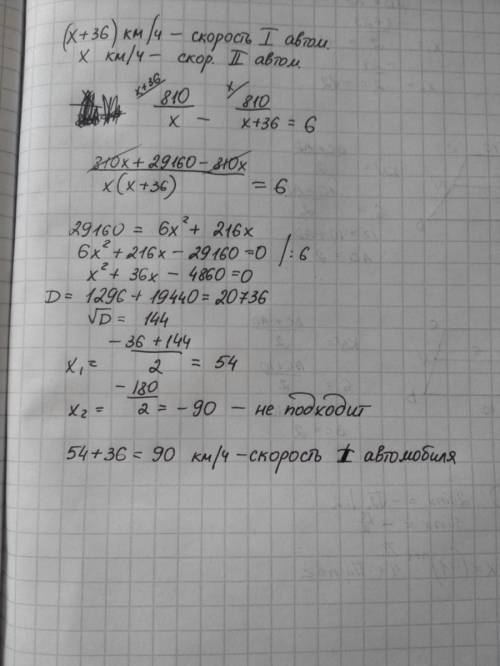 (x+36) км/ч – скорость I автом.
x км/ч – скор. II автом.
x+36 810/x – x 810/x+36 = 6
810x + 29160 – 810x / x(x+36) = 6
29160 = 6x² + 216x
6x² + 216x – 29160 = 0 /:6
x² + 36x – 4860 = 0
D = 1296 + 19440 = 20736
√D = 144
x₁ = –36 + 144 / 2 = 54
x₂ = –180 / 2 = –90 – не подходит
54 + 36 = 90 км/ч – скорость I автомобиля